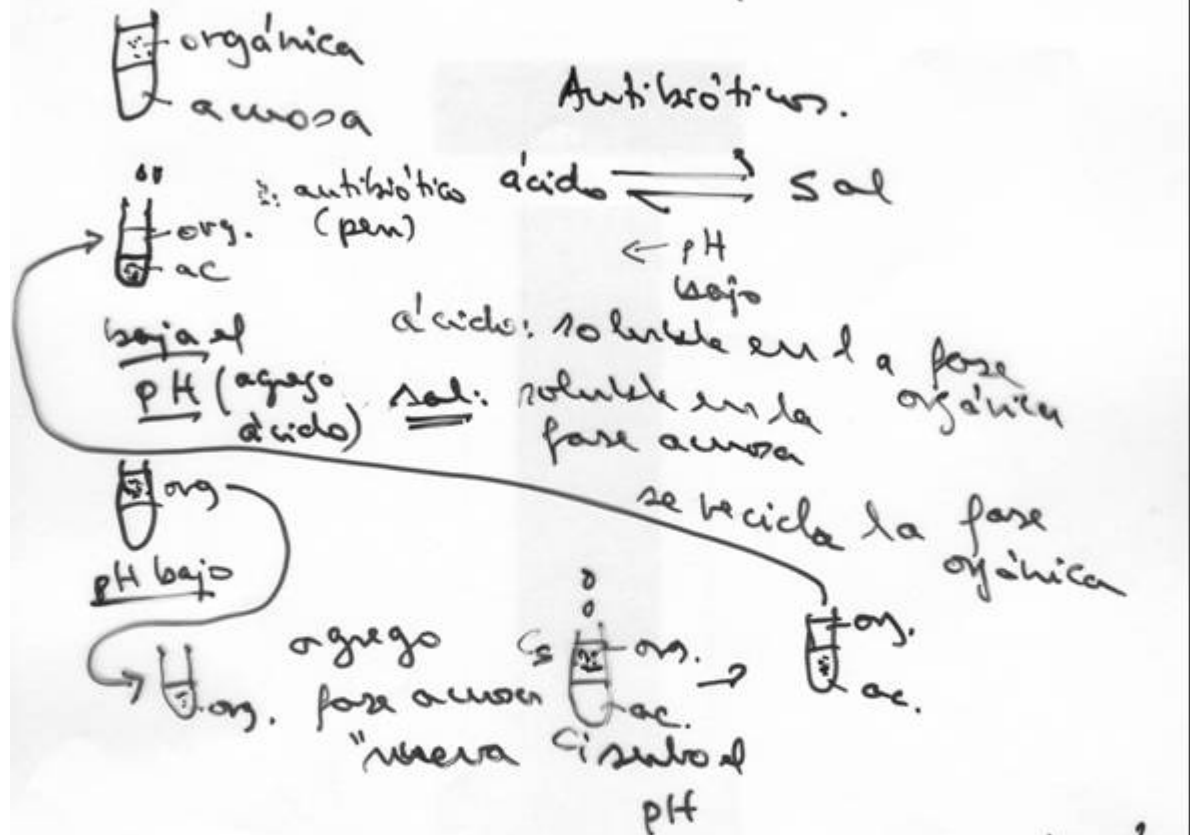 orgánica
Antibióticos.
acuosa
antibiótico ácido ⇌ sal
(pen)
org.
ac
← pH
bajo
baja el
pH (agrego
ácido)
ácido: soluble en la fase
orgánica
sal: soluble en la
fase acuosa
org
se recicla la fase
orgánica
pH bajo
org.
agrego
fase acuosa
"nueva
Cs
org.
ac.
Ci subo el
pH
→
org.
ac.